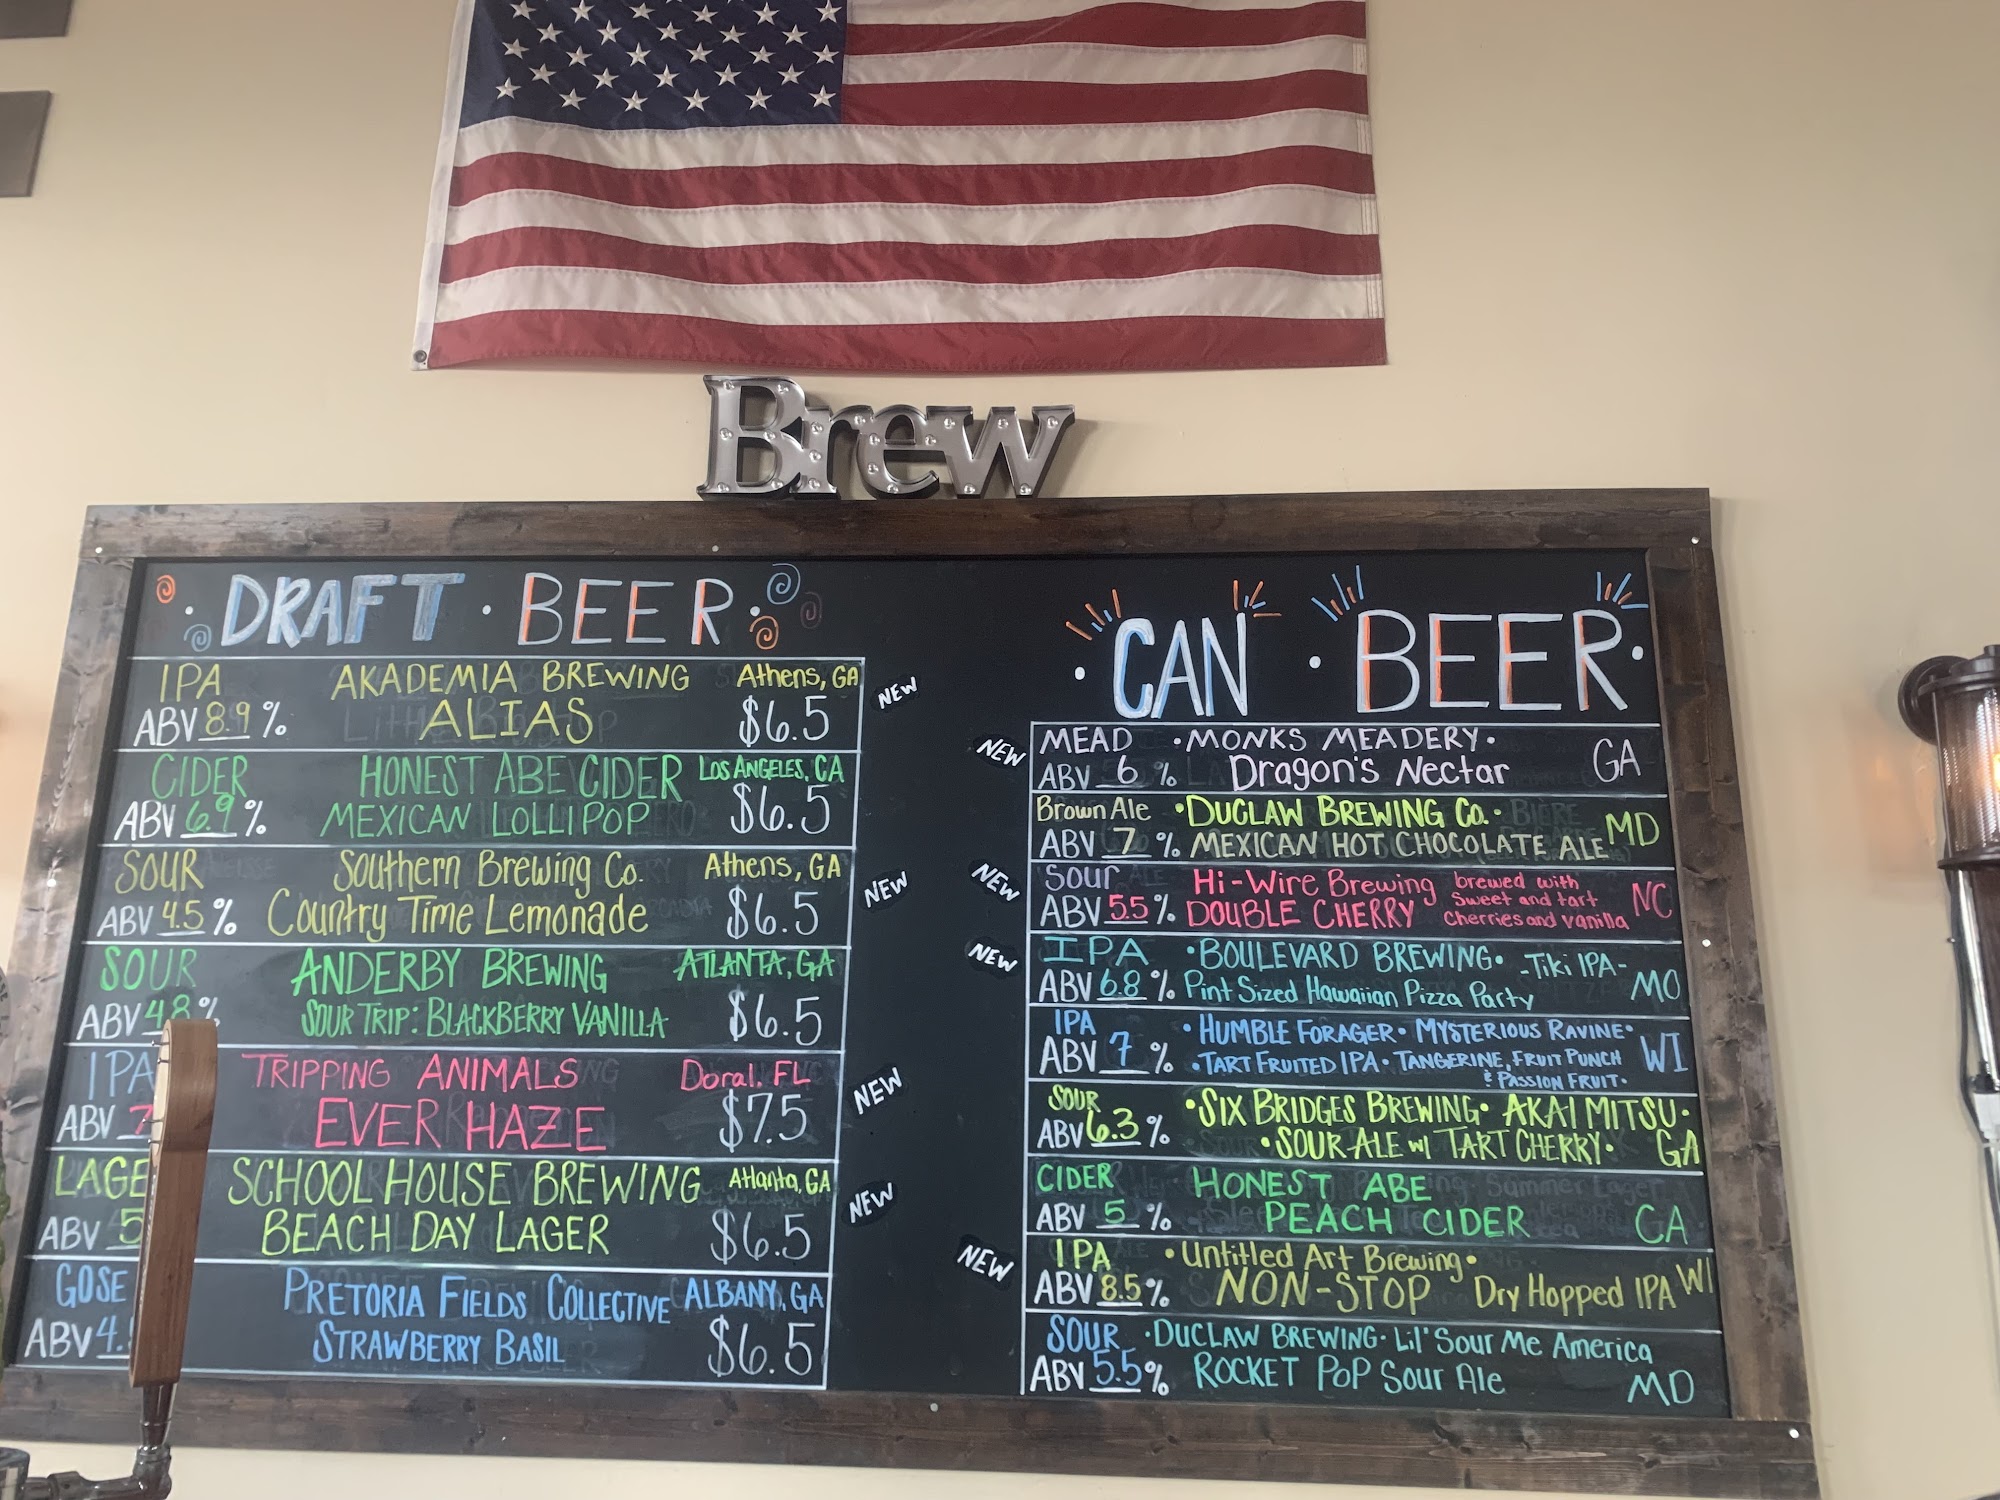 Brew
DRAFT · BEER
IPA AKADEMIA BREWING Athens, GA
ABV 8.9 % ALIAS $6.5 NEW
CIDER HONEST ABE CIDER LOS ANGELES, CA
ABV 6.9 % MEXICAN LOLLIPOP $6.5
SOUR Southern Brewing Co. Athens, GA
ABV 4.5 % Country Time Lemonade $6.5 NEW
SOUR ANDERBY BREWING ATLANTA, GA
ABV 4.8 % SOUR TRIP: BLACKBERRY VANILLA $6.5
IPA TRIPPING ANIMALS Doral, FL
ABV 7 EVER HAZE $7.5 NEW
LAGE SCHOOL HOUSE BREWING Atlanta, GA
ABV 5 BEACH DAY LAGER $6.5 NEW
GOSE PRETORIA FIELDS COLLECTIVE ALBANY, GA
ABV 4. STRAWBERRY BASIL $6.5
· CAN · BEER ·
NEW MEAD · MONKS MEADERY · GA
ABV 6 % Dragon's Nectar
Brown Ale · DUCLAW BREWING CO. · MD
ABV 7 % MEXICAN HOT CHOCOLATE ALE
NEW Sour Hi-Wire Brewing brewed with
Sweet and tart NC
ABV 5.5 % DOUBLE CHERRY cherries and vanilla
NEW IPA · BOULEVARD BREWING · -Tiki IPA-
ABV 6.8 % Pint Sized Hawaiian Pizza Party MO
IPA · HUMBLE FORAGER · MYSTERIOUS RAVINE ·
ABV 7 % · TART FRUITED IPA · TANGERINE, FRUIT PUNCH WI
& PASSION FRUIT ·
SOUR · SIX BRIDGES BREWING · AKAI MITSU ·
ABV 6.3 % · SOUR ALE w/ TART CHERRY · GA
CIDER HONEST ABE
ABV 5 % PEACH CIDER CA
NEW IPA · Untitled Art Brewing ·
ABV 8.5 % NON-STOP Dry Hopped IPA WI
SOUR · DUCLAW BREWING · Lil' Sour Me America
ABV 5.5 % ROCKET POP Sour Ale MD